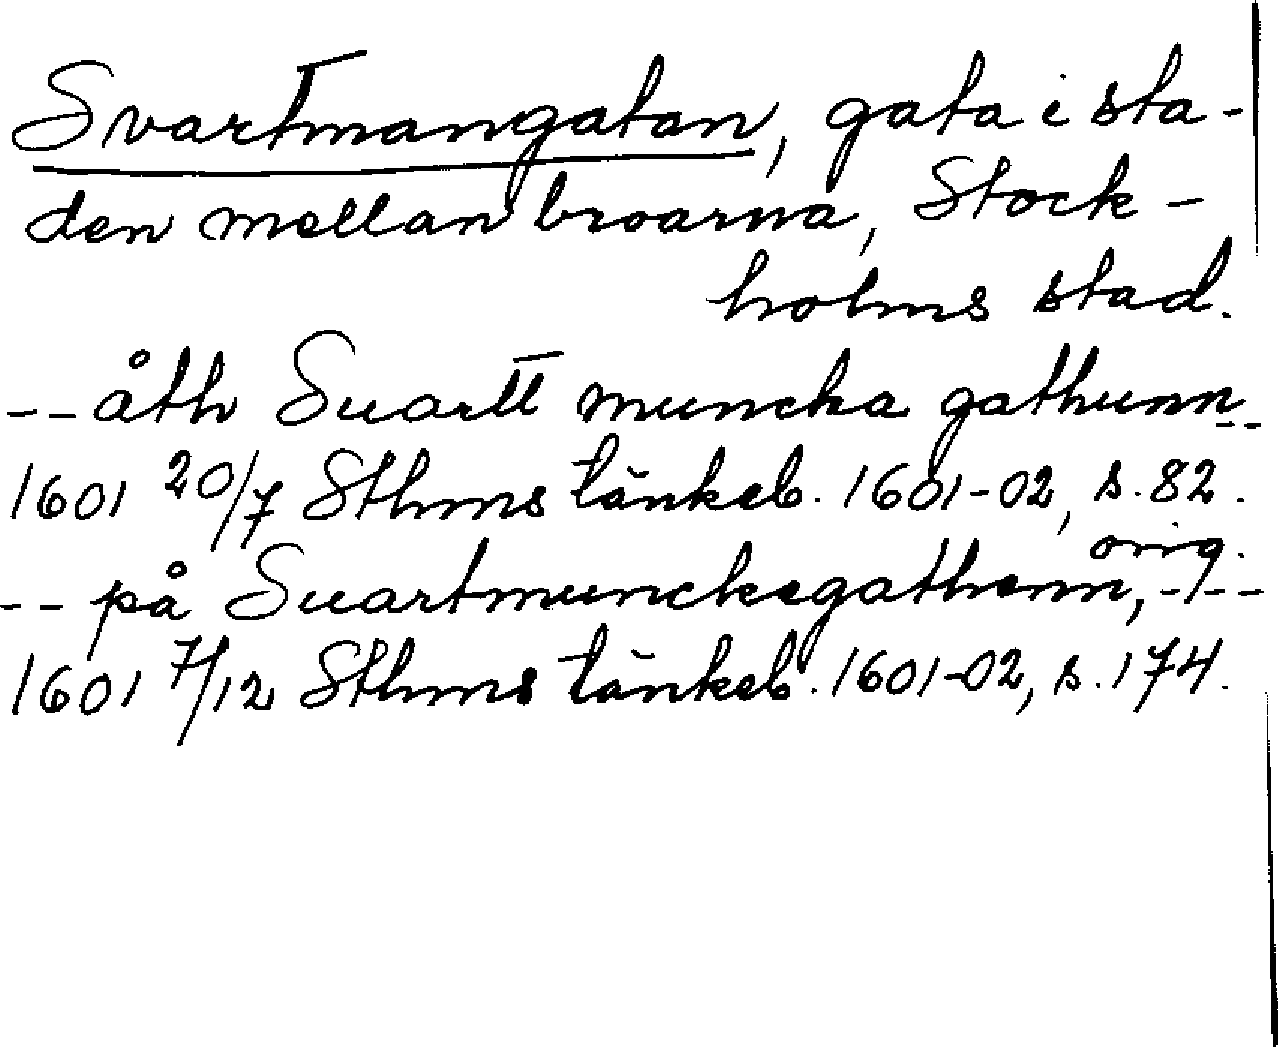 Svartmangatan, gata i sta-
den mellan broarna, Stock-
holms stad.
-- åth Suartt muncka gathunn --
1601 20/7 Sthms tänkeb. 1601-02, s. 82.
orig.
-- på Suartmunckegathenn, ---
1601 7/12 Sthms tänkeb. 1601-02, s. 174.